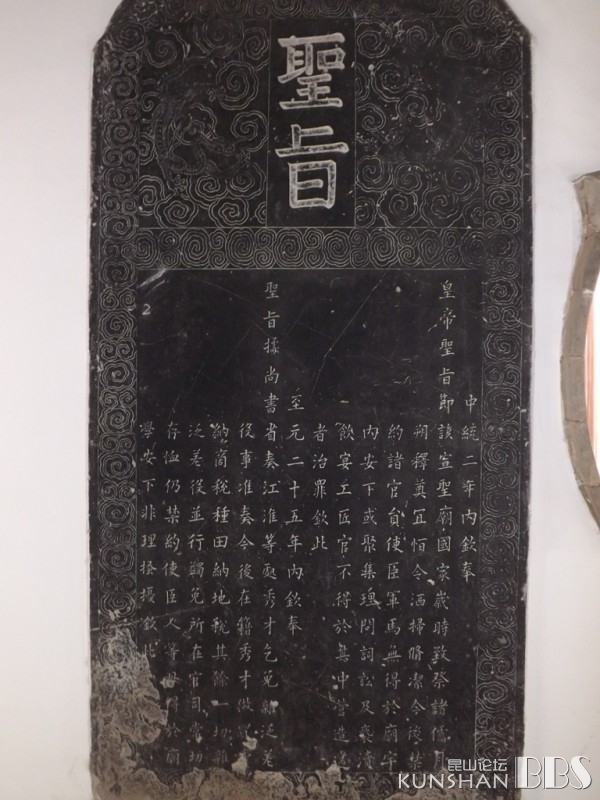 聖旨
中統二年內欽奉
皇帝聖旨節該宣聖廟國家歲時致祭諸儒月
朔釋奠宜恒令洒掃脩潔今後禁
約諸官員使臣軍馬無得於廟宇
內安下或聚集理問詞訟及褻瀆
飲宴工匠官不得於其中營造違
者治罪欽此
至元二十五年內欽奉
聖旨據尚書省奏江淮等處秀才乞免雜泛差
役事准奏今後在籍秀才做買
納商稅種田納地稅其餘一切雜
泛差役並行蠲免所在官司常切
存恤仍禁約使臣人等毋得於廟
學安下非理搔擾欽此
昆山论坛
KUNSHAN BBS